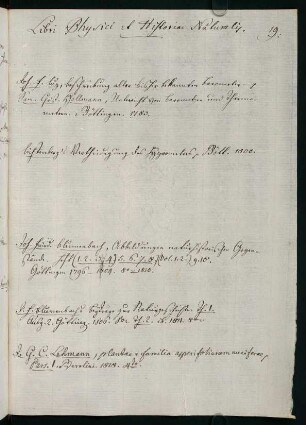 Libri Physici et Historiae Naturalis.
19.
Joh. F. Luz, Beschreibung aller bisher bekannter Barometer,
Sam. Christ. Hollmann, Unterricht von Barometern und Thermo-
metern. Göttingen 1783.
Lichtenberg's Vertheidigung des Hygrometers, Gött. 1800.
Joh. Fried. Blumenbach, Abbildungen naturhistorischer Gegen-
stände. Heft 1. 2. 3. 4. 5. 6. 7. 8. 9. 10.
Göttingen 1796. 1809. 8° 1810.
J. F. Blumenbach's Beyträge zur Naturgeschichte. Th. 1.
Aufl. 2. Götting. 1806. Th. 2. 1811. 8°.
J. G. C. Lehmann, plantae e familia asperifoliarum nuciferae,
Pars. I. Berolin. 1818. 4to.